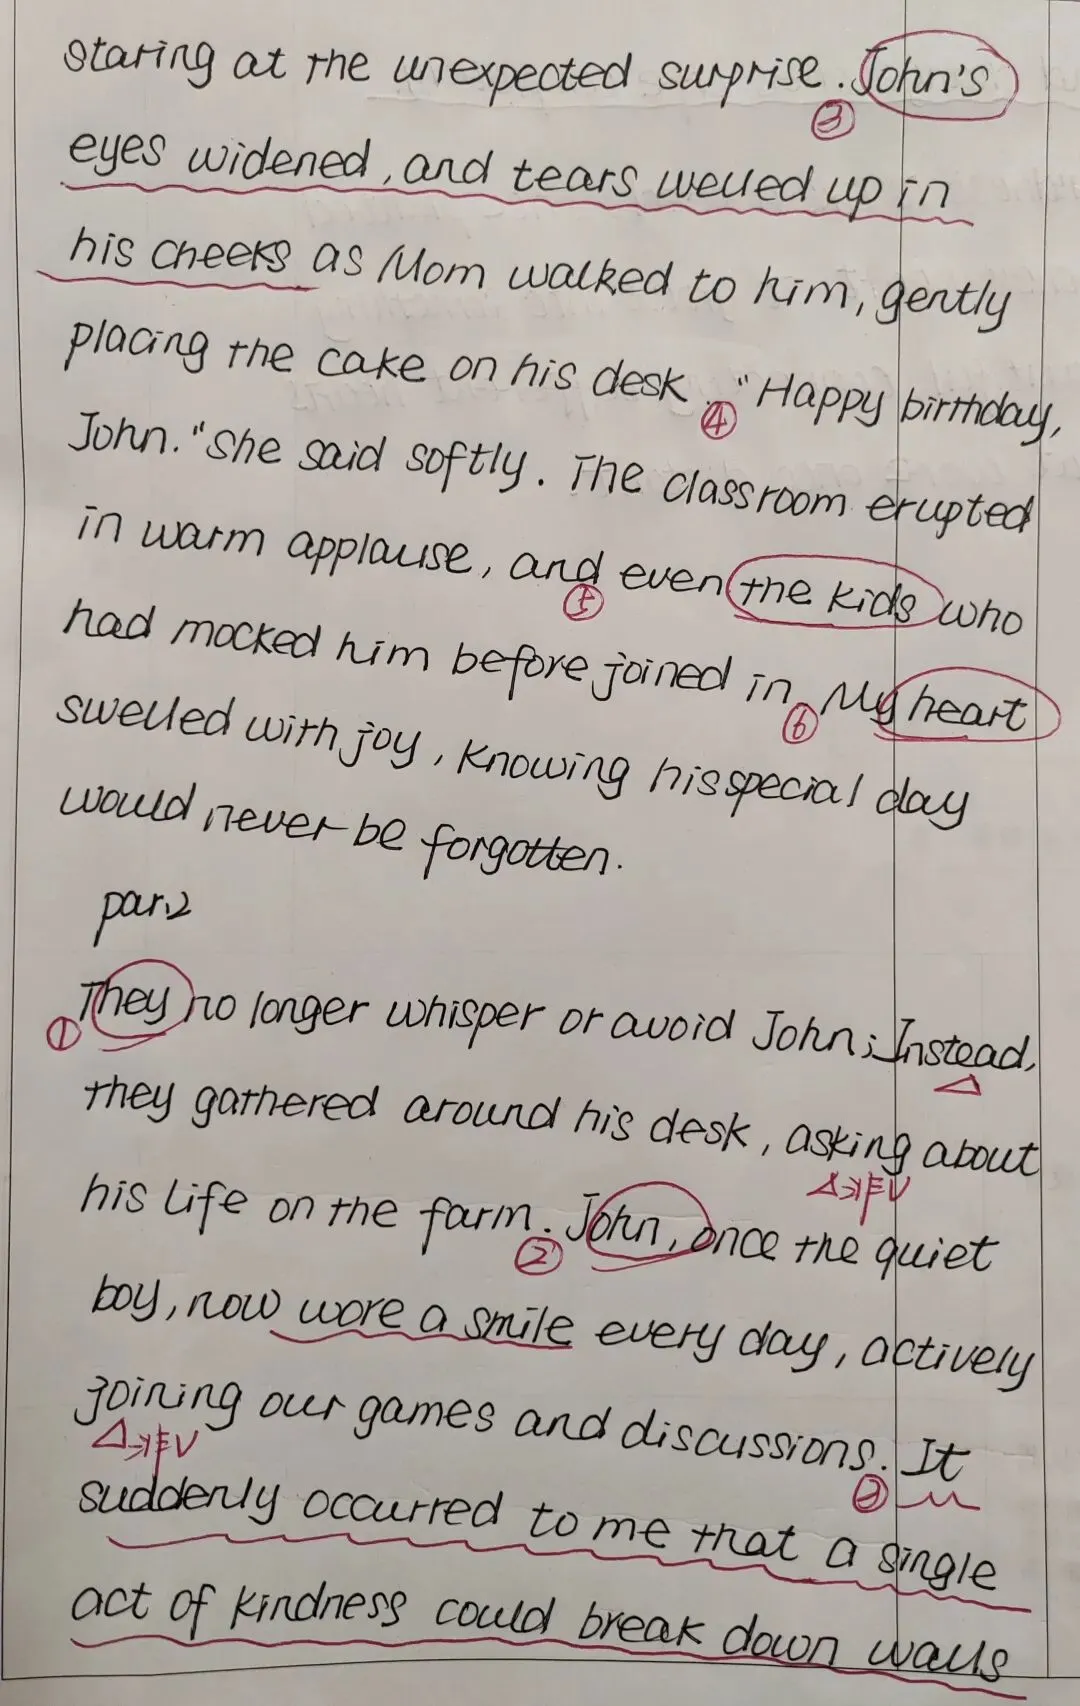 staring at the unexpected surprise. John's
③
eyes widened, and tears welled up in
his cheeks as Mom walked to him, gently
placing the cake on his desk. "Happy birthday,
④
John." She said softly. The classroom erupted
in warm applause, and even the kids who
⑤
had mocked him before joined in. My heart
⑥
swelled with joy, knowing his special day
would never be forgotten.
par.2
① They no longer whisper or avoid John; Instead,
they gathered around his desk, asking about
非V
his life on the farm. John, once the quiet
②
boy, now wore a smile every day, actively
joining our games and discussions. It
非V
③
suddenly occurred to me that a single
act of kindness could break down walls